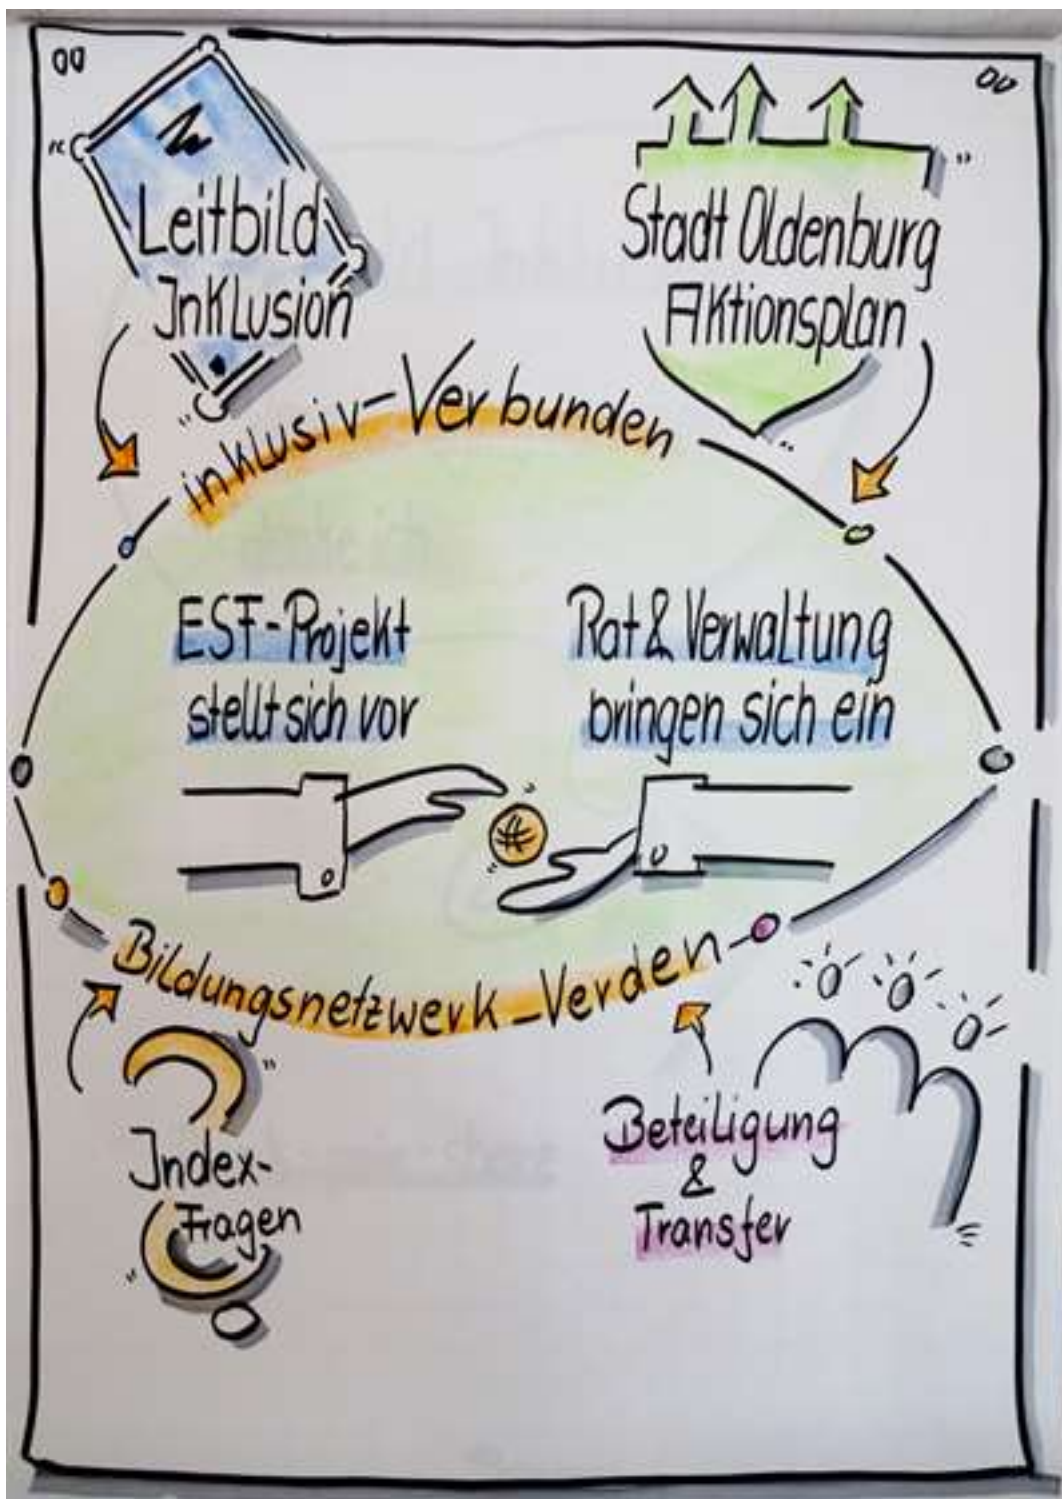 Leitbild
Inklusion
Stadt Oldenburg
Aktionsplan
inklusiv-Verbunden
ESF-Projekt
stellt sich vor
Rat & Verwaltung
bringen sich ein
Bildungsnetzwerk-Verden
Index-
Fragen
Beteiligung
&
Transfer